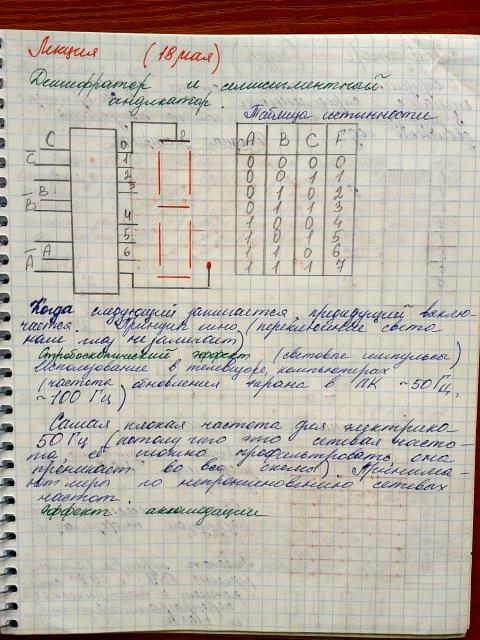 Лекция (18 мая)
Дешифратор и семисигментный
индикатор.
Таблица истинности
C
C̅
B
B̅
A
A̅
0
1
2
3
4
5
6
A B C F
0 0 0 0
0 0 1 1
0 1 0 2
0 1 1 3
1 0 0 4
1 0 1 5
1 1 0 6
1 1 1 7
Когда следующий зажигается, предидущий
чается. Принцип кино (переключение света
наш глаз не замечает)
Стробоскопический эффект (световые импульсы)
Использование в телевизоре, компьютерах
(частота обновления экрана в ПК ~50 Гц,
~100 Гц)
Самая плохая частота для электрико-
50 Гц (потому что это сетевая часто-
та, её сложно профильтровать она
проникает во все схемы). Принима-
ют меры по непроникновению сетевых
частот.
Эффект аккомодации